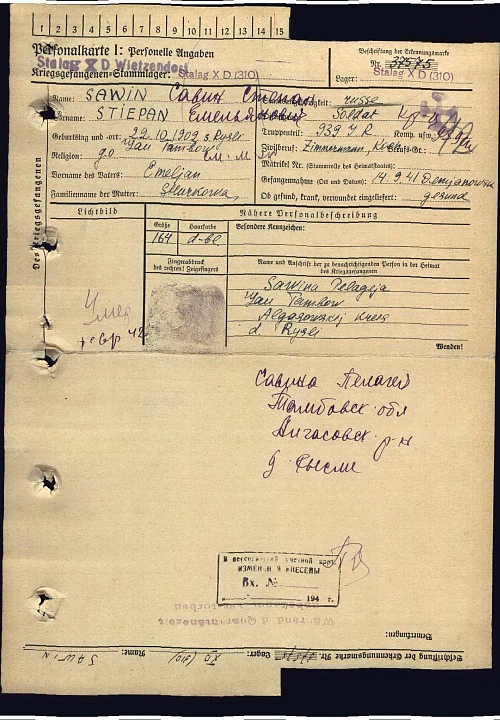 1 2 3 4 5 6 7 8 9 10 11 12 13 14 15
Personalkarte I: Personelle Angaben
Stalag X D Wietzendorf
Kriegsgefangenen-Stammlager: Stalag X D (310)
Beschriftung der Erkennungsmarke
Nr. 37575
Lager: Stalag X D (310)
Des Kriegsgefangenen
Name: SAWIN Савин Степан
Vorname: STIEPAN Емельянович
Geburtstag und -ort: 22.10.1902 s. Rysli
Jau Tambow
Religion: g.o
Vorname des Vaters: Emeljan
Familienname der Mutter:
Staatsangehörigkeit: russe
Dienstgrad: Soldat
Truppenteil: 939 J R Komp. usw.
Zivilberuf: Zimmermann,
Matrikel Nr. (Stammrolle des Heimatstaates):
Gefangennahme (Ort und Datum): 14.9.41 Demjanowsk
Ob gesund, krank, verwundet eingeliefert: gesund
Lichtbild
Nähere Personalbeschreibung
Größe
164
Haarfarbe
d-bl
Besondere Kennzeichen:
Fingerabdruck
des rechten! Zeigefingers
Name und Anschrift der zu benachrichtigenden Person in der Heimat
des Kriegsgefangenen
Sawina Pelageja
Jau Tambow
Algasowskij Kreis
d Rysli
Wenden!
Умер
февр 42
Савина Пелагея
Тамбовск. обл
Алгасовск. р-н
д. Рысли
ИЗМЕНЕНИЯ ВНЕСЕНЫ
Вх. №
194 г.
Während d Quarantänezeit
verstorben
Bemerkungen:
Beschriftung der Erkennungsmarke Nr. 37575 Lager: XD (310) Name: SAWIN